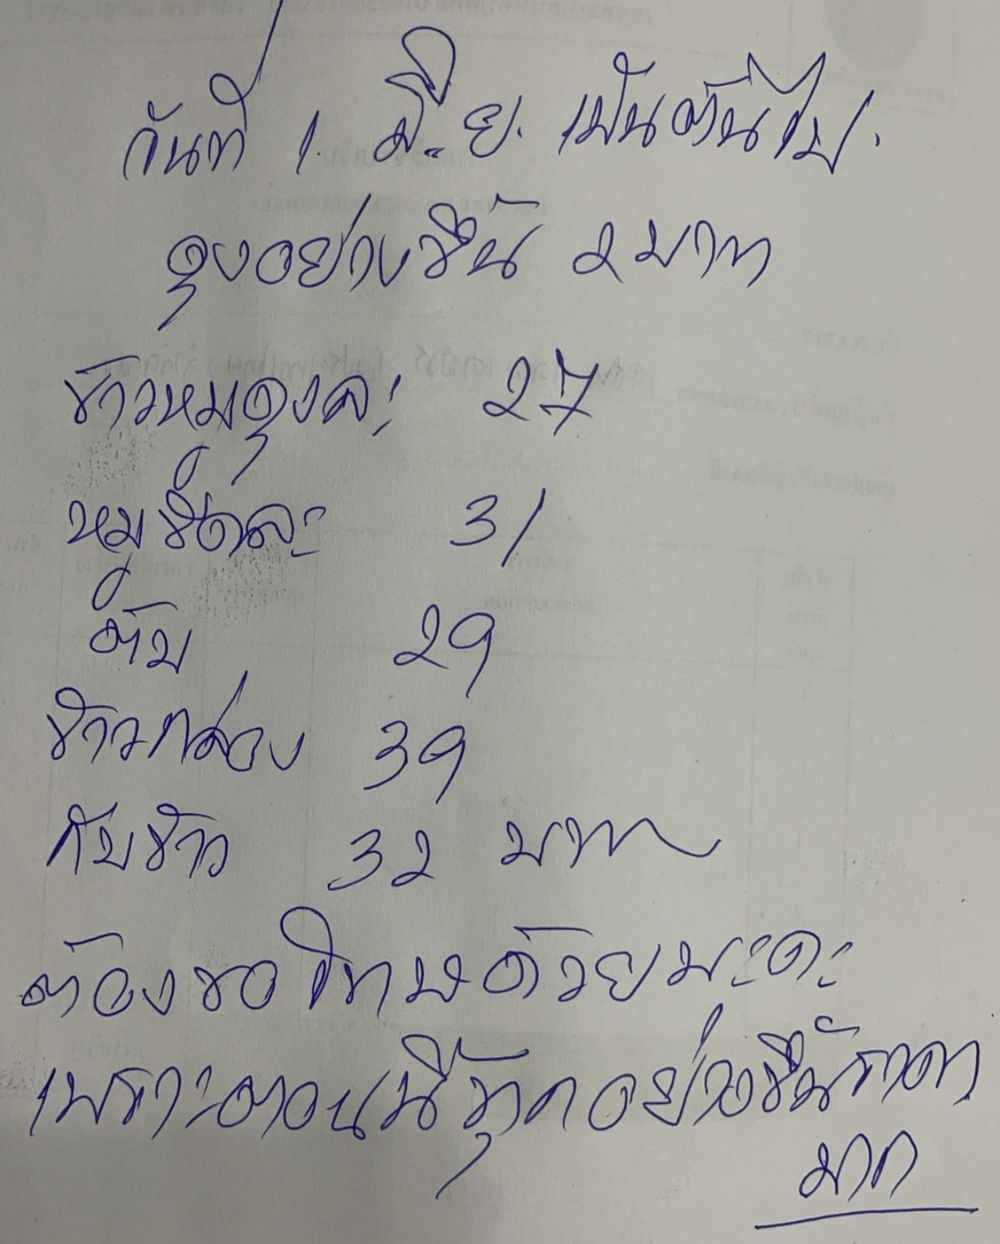 วันที่ 1. มิ.ย. เป็นต้นไป.
ถุงอย่างขึ้น 2 บาท
ข้าวหมูถุงละ 27
หมูขีดละ 31
ตับ 29
ข้าวกล่อง 39
กับข้าว 32 บาท
ต้องขอโทษด้วยนะคะ
เพราะตอนนี้ทุกอย่างขึ้นราคา
มาก